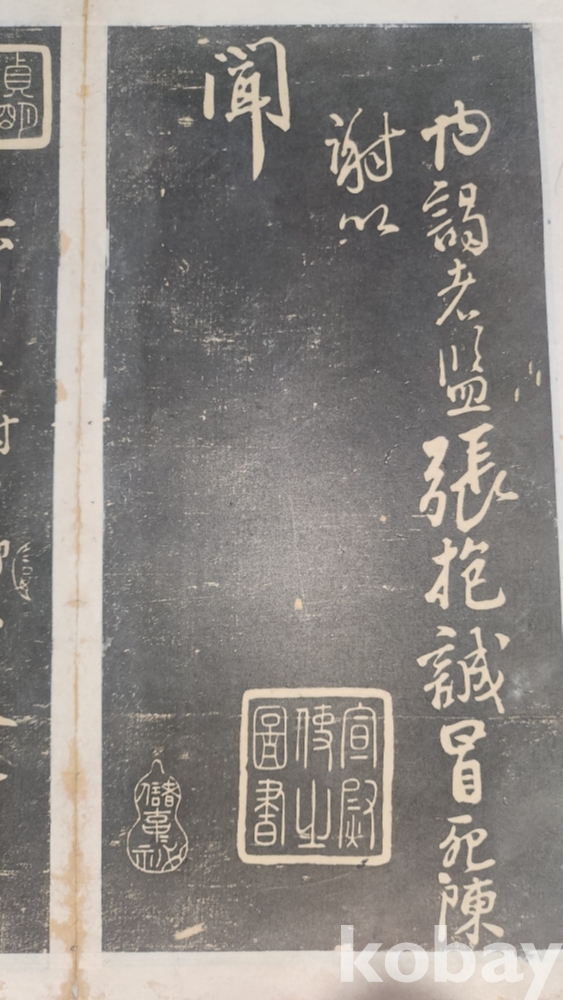 内謁者監張抱誠冒死陳
謝以
聞
宣尉
使之
圖書
貞
kobay